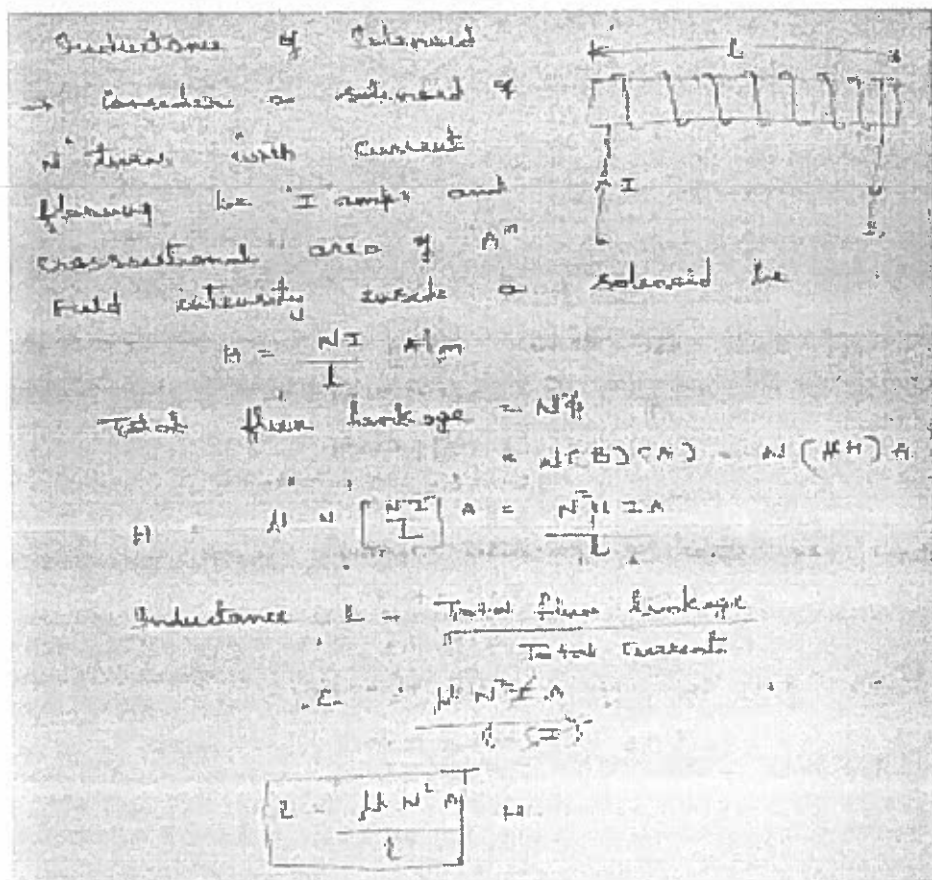 Inductance of Solenoid
L
→ Consider a solenoid of
N turns with current
I
flowing be "I" amps and
crosssectional area of "A"
Field intensity inside a solenoid be
H = NI / L A/m
Total flux linkage = Nφ
= N(B)(A) = N(μH)A
μ N [NI / L] A = N²μIA / L
Inductance L → Total flux linkage / Total Current
μN²IA / l(I)
L = μN²A / l H